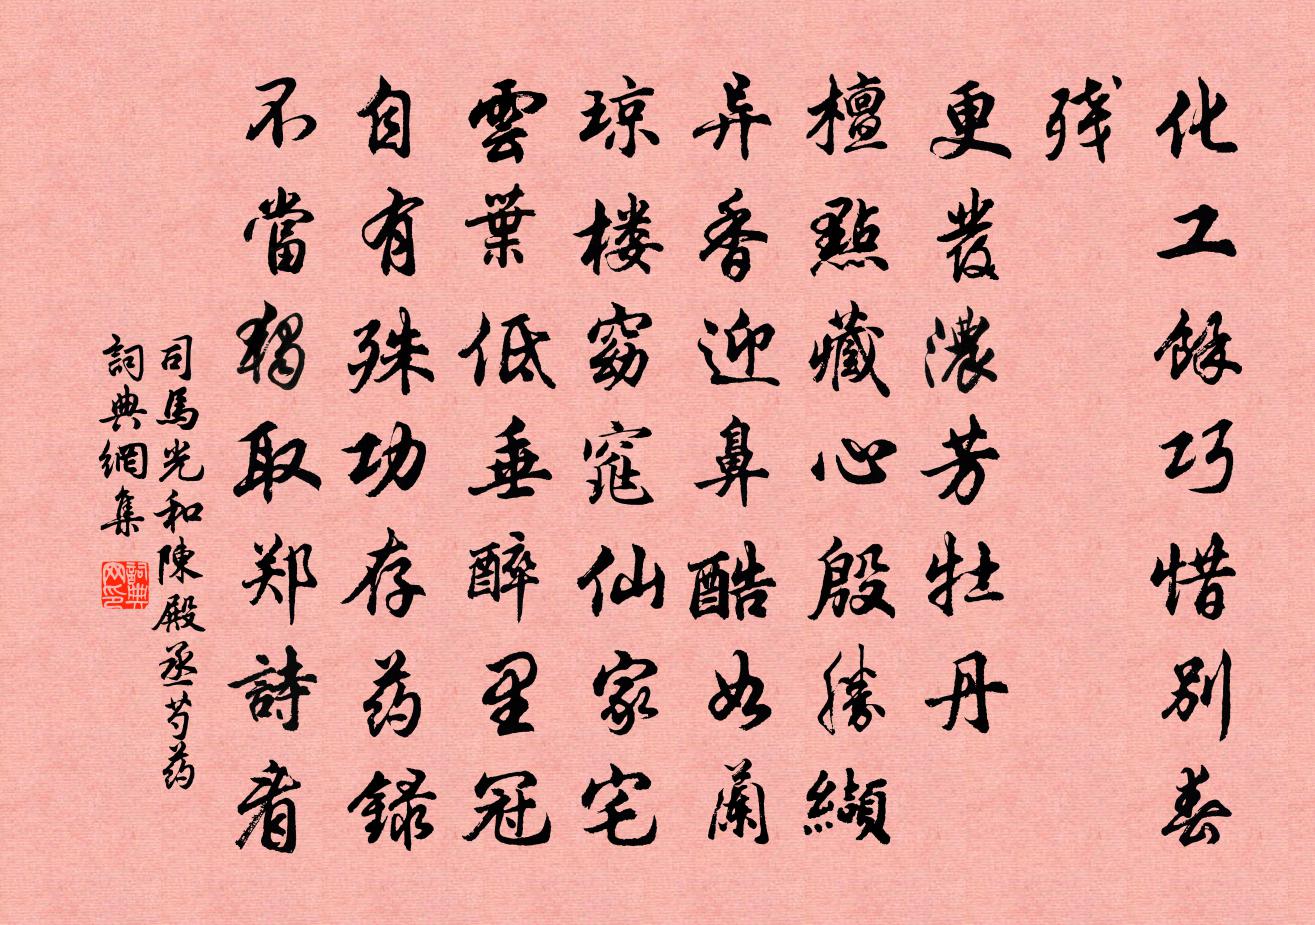 化工餘巧惜別春
残
更發濃芳牡丹
檀點藏心殷勝纈
异香迎鼻酷如蘭
琼楼窈窕仙家宅
雲葉低垂醉里冠
自有殊功存药録
不當獨取郑詩看
司馬光和陳殿丞芍药
詞典網集